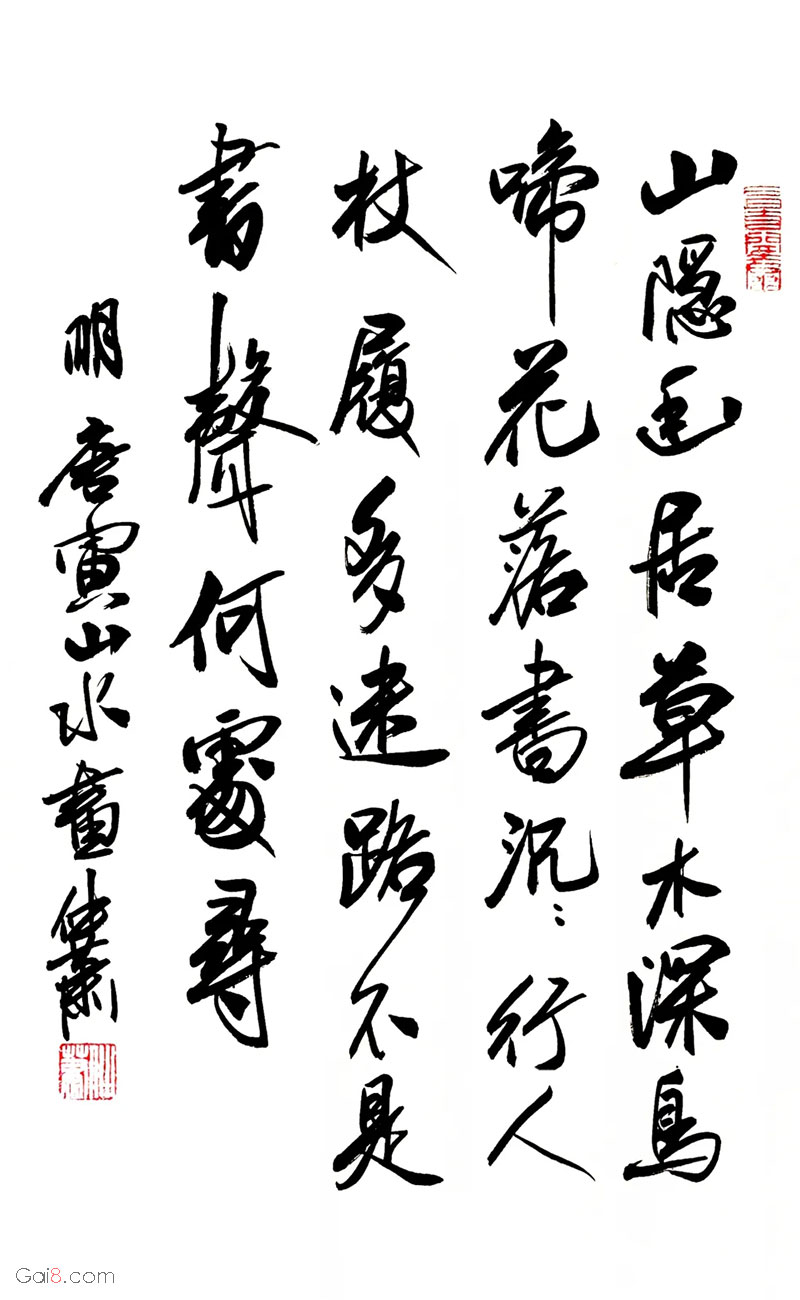 山隱幽居草木深鳥
啼花落晝沉〻行人
杖履多迷路不是
書聲何處尋
明 唐寅山水畫 仲蕭
Gai8.com